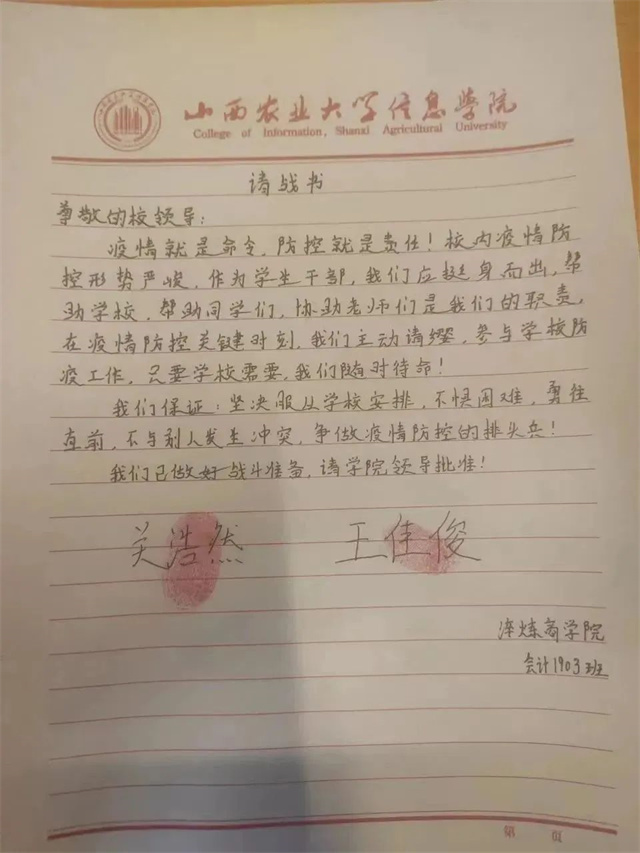 山西农业大学信息学院
College of Information, Shanxi Agricultural University
请战书
尊敬的校领导：
疫情就是命令，防控就是责任！校内疫情防
控形势严峻，作为学生干部，我们应挺身而出，帮
助学校，帮助同学们，协助老师们是我们的职责，
在疫情防控关键时刻，我们主动请缨，参与学校防
疫工作，只要学校需要，我们随时待命！
我们保证：坚决服从学校安排，不惧困难，勇往
直前，不与别人发生冲突，争做疫情防控的排头兵！
我们已做好战斗准备，请学院领导批准！
关浩然 王佳俊
淬炼商学院
会计1903班
第 页